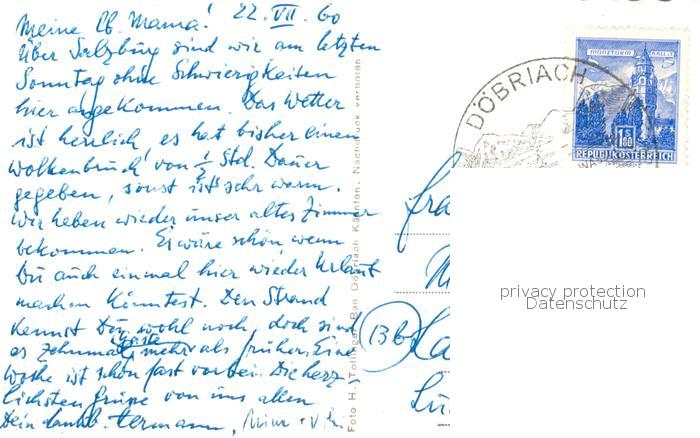 Meine lb. Mama! 22. VII. 60
Über Salzburg sind wir am letzten
Sonntag ohne Schwierigkeiten
hier angekommen. Das Wetter
ist herrlich, es hat bisher einen
Wolkenbruch von ½ Std. Dauer
gegeben, sonst ist sehr warm.
Wir haben wieder unser altes Zimmer
bekommen. Es wäre schön wenn
Du auch einmal hier wieder Urlaub
machen könntest. Den Strand
kennst Du wohl noch, doch sind
es zehnmal mehr Gäste als früher. Eine
Woche ist schon fast vorbei. Die herz
lichsten Grüße von uns allen
Dein dankb. Hermann,
Foto H. Tollinger, Bad Döbriach Kärnten. Nachdruck verboten
DÖBRIACH
MÜNZTURM HALL i/T
1 S 80
REPUBLIK ÖSTERREICH
13b
privacy protection
Datenschutz